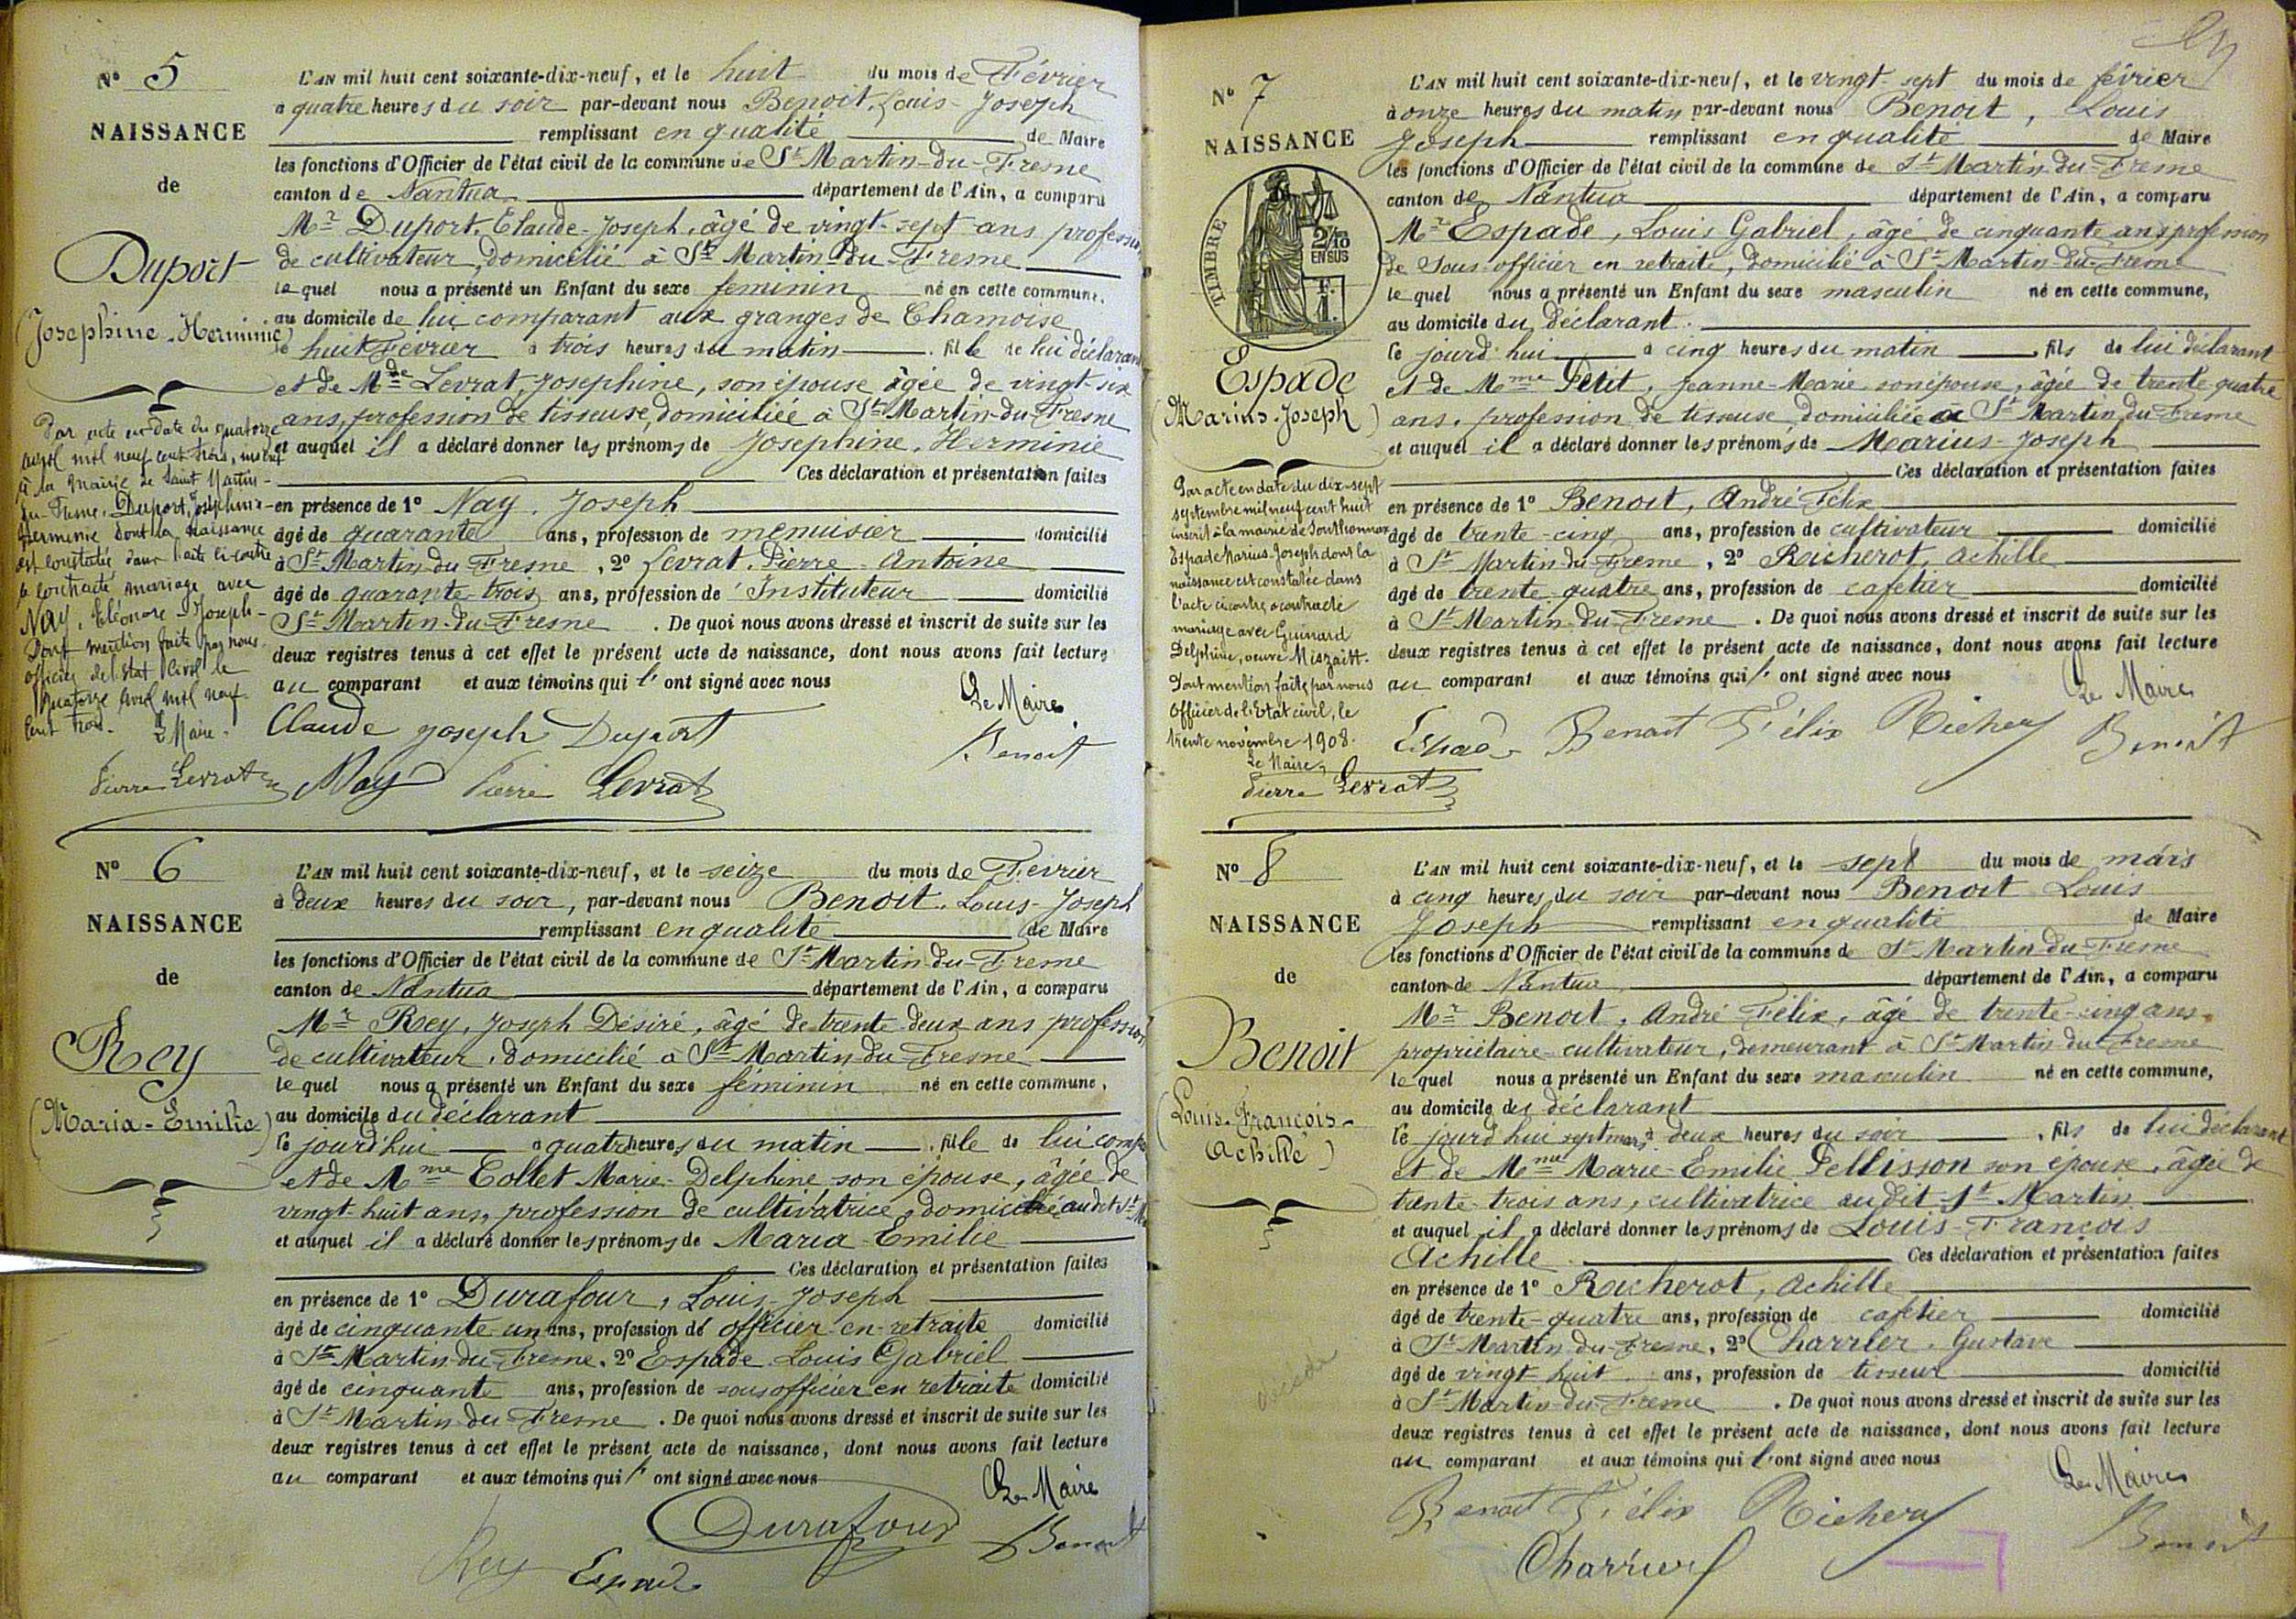 Nº 5
NAISSANCE
de
Duport
(Josephine-Herminie)
Par acte en date du quatorze
avril mil neuf cent trois, inscrit
à la Mairie de Saint Martin-
du-Fresne, Duport, Joséphine-
Herminie dont la naissance
est constatée dans l'acte ci-contre
a contracté mariage avec
Nay, Eléonore-Joseph-
Dont mention faite par nous
officier de l'Etat Civil le
quatorze avril mil neuf
cent trois.
Le Maire.
Pierre Levrat
L'AN mil huit cent soixante-dix-neuf, et le huit du mois de Février
a quatre heures du soir par-devant nous Benoit, Louis-Joseph
remplissant en qualité de Maire
les fonctions d'Officier de l'état civil de la commune de St Martin-du-Fresne
canton de Nantua département de l'Ain, a comparu
Mr Duport, Claude-Joseph, âgé de vingt-sept ans profession
de cultivateur, domicilié à St Martin-du-Fresne
le quel nous a présenté un Enfant du sexe feminin né en cette commune,
au domicile de lui comparant aux granges de Chamoise
le huit Février à trois heures du matin . fille de lui déclarant
et de Mde Levrat, Josephine, son épouse âgée de vingt-six
ans, profession de tisseuse, domiciliée à St Martin-du-Fresne
et auquel il a déclaré donner les prénoms de Josephine, Herminie
Ces déclaration et présentation faites
en présence de 1º Nay, Joseph
âgé de quarante ans, profession de menuisier domicilié
à St Martin du Fresne, 2º Levrat, Pierre-Antoine
âgé de quarante trois ans, profession de Instituteur domicilié
St Martin-du-Fresne . De quoi nous avons dressé et inscrit de suite sur les
deux registres tenus à cet effet le présent acte de naissance, dont nous avons fait lecture
au comparant et aux témoins qui l'ont signé avec nous
Le Maire
Claude joseph Duport
Benoit
Nay Pierre Levrat
Nº 6
NAISSANCE
de
Rey
(Maria-Emilie)
L'AN mil huit cent soixante-dix-neuf, et le seize du mois de Fevrier
à deux heures du soir, par-devant nous Benoit, Louis-Joseph
remplissant en qualité de Maire
les fonctions d'Officier de l'état civil de la commune de St Martin-du-Fresne
canton de Nantua département de l'Ain, a comparu
Mr Rey, Joseph Désiré, âgé de trente-deux ans profession
de cultivateur, domicilié à St Martin-du-Fresne
le quel nous a présenté un Enfant du sexe féminin né en cette commune,
au domicile du déclarant
le jourd'hui a quatre heures du matin . fille de lui comp
et de Mme Collet Marie-Delphine son épouse, âgée de
vingt-huit ans, profession de cultivatrice, domiciliée audit St M
et auquel il a déclaré donner les prénoms de Maria-Emilie
Ces déclaration et présentation faites
en présence de 1º Durafour, Louis-Joseph
âgé de cinquante un ans, profession de officier-en-retraite domicilié
à St Martin-du-Fresne, 2º Espade Louis Gabriel
âgé de cinquante ans, profession de sous officier en retraite domicilié
à St Martin-du-Fresne . De quoi nous avons dressé et inscrit de suite sur les
deux registres tenus à cet effet le présent acte de naissance, dont nous avons fait lecture
au comparant et aux témoins qui l'ont signé avec nous
Le Maire
Durafour Benoit
Rey Espade
Nº 7
NAISSANCE
TIMBRE
2/10
EN SUS
1 F.
Espade
(Marius-Joseph)
Par acte en date du dix-sept
septembre mil neuf cent huit
inscrit à la mairie de Sonthonnax
Espade Marius-Joseph dont la
naissance est constatée dans
l'acte ci contre a contracté
mariage avec Guinard
Delphine, veuve Miszaitt.
Dont mention faite par nous
Officier de l'Etat civil, le
trente novembre 1908.
Le Maire,
Pierre Levrat
L'AN mil huit cent soixante-dix-neuf, et le vingt-sept du mois de février
à onze heures du matin par-devant nous Benoit, Louis
Joseph remplissant en qualité de Maire
les fonctions d'Officier de l'état civil de la commune de St Martin-du-Fresne
canton de Nantua département de l'Ain, a comparu
Mr Espade, Louis Gabriel, âgé de cinquante ans profession
de Sous-officier en retraite, domicilié à St Martin-du-Fresne
le quel nous a présenté un Enfant du sexe masculin né en cette commune,
au domicile du déclarant.
le jourd'hui à cinq heures du matin , fils de lui déclarant
et de Mme Petit, Jeanne-Marie son épouse, âgée de trente quatre
ans, profession de tisseuse domiciliée à St Martin du Fresne
et auquel il a déclaré donner les prénoms de Marius-Joseph
Ces déclaration et présentation faites
en présence de 1º Benoit, André Felix
âgé de trente-cinq ans, profession de cultivateur domicilié
à St Martin-du-Fresne, 2º Richerot, Achille
âgé de trente-quatre ans, profession de cafetier domicilié
à St Martin-du-Fresne . De quoi nous avons dressé et inscrit de suite sur les
deux registres tenus à cet effet le présent acte de naissance, dont nous avons fait lecture
au comparant et aux témoins qui l'ont signé avec nous
Le Maire
Espade Benoit Félix Richerot Benoit
Nº 8
NAISSANCE
de
Benoit
(Louis-François-
Achille)
L'AN mil huit cent soixante-dix-neuf, et le sept du mois de mars
à cinq heures du soir par-devant nous Benoit Louis
Joseph remplissant en qualité de Maire
les fonctions d'Officier de l'état civil de la commune de St Martin-du-Fresne
canton de Nantua département de l'Ain, a comparu
Mr Benoit, André Félix, âgé de trente-cinq ans,
propriétaire-cultivateur, demeurant à St Martin du Fresne
le quel nous a présenté un Enfant du sexe masculin né en cette commune,
au domicile du déclarant
le jourd'hui sept mars à deux heures du soir , fils de lui déclarant
et de Mme Marie-Emilie Pellisson son épouse, âgée de
trente-trois ans, cultivatrice audit St Martin
et auquel il a déclaré donner les prénoms de Louis-François
Achille Ces déclaration et présentation faites
en présence de 1º Richerot, Achille
âgé de trente-quatre ans, profession de cafetier domicilié
à St Martin-du-Fresne, 2º Charrier, Gustave
âgé de vingt-huit ans, profession de tisseur domicilié
à St Martin-du-Fresne . De quoi nous avons dressé et inscrit de suite sur les
deux registres tenus à cet effet le présent acte de naissance, dont nous avons fait lecture
au comparant et aux témoins qui l'ont signé avec nous
Le Maire
Benoit Félix Richerot Benoit
Charrier